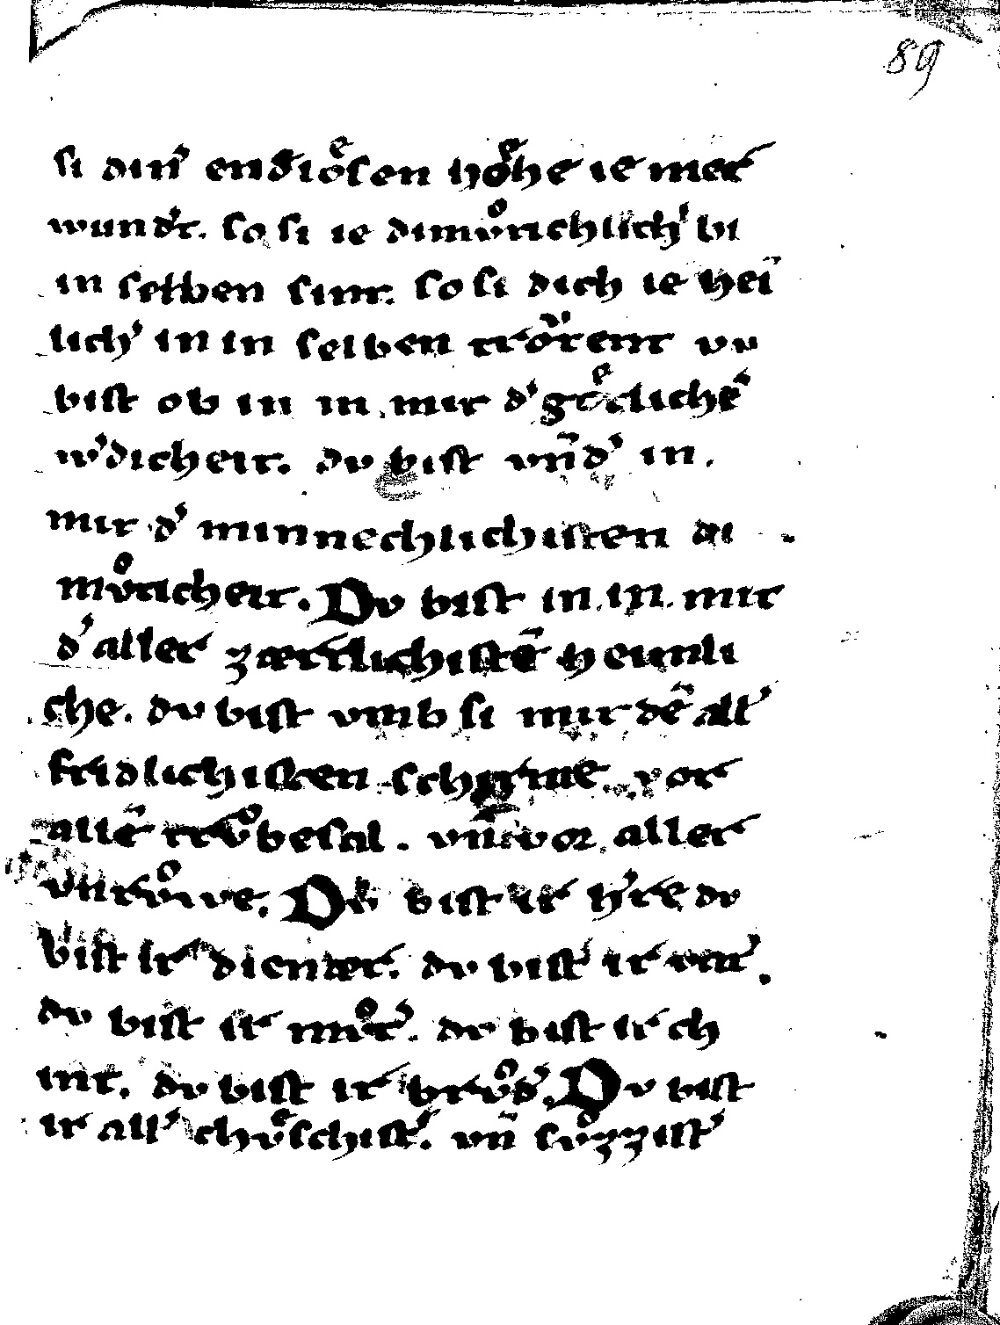 89
si din̾ endloͤsen hoͤhe ie mer
wund̾t. so si ie dimuͦtichlich̾ bi
in selben sint. so si dich ie hei
lich̾ in in selben troͤr̾ent vn̄
bist ob in in. mir d̾ goͤtlichē
w̾dicheit. du bist vnd̾ in.
mir d̾ minnechlichisten di
muͦticheit. Du bist in. in. mit
d̾ aller zærtlichistē heimli
che. du bist vmb si mit dē all̾
fridlichisten schirme. vor
allē truͦbesal. vn̄ vor aller
vnruͦwe. Du bist ir h̾re du
bist ir diener. du bist ir vat̾.
du bist ir muͦt̾. du bist ir ch
int. du bist ir bruͦd̾. Du bist
ir all̾ chuͤschist̾. vn̄ suͦzzist̾